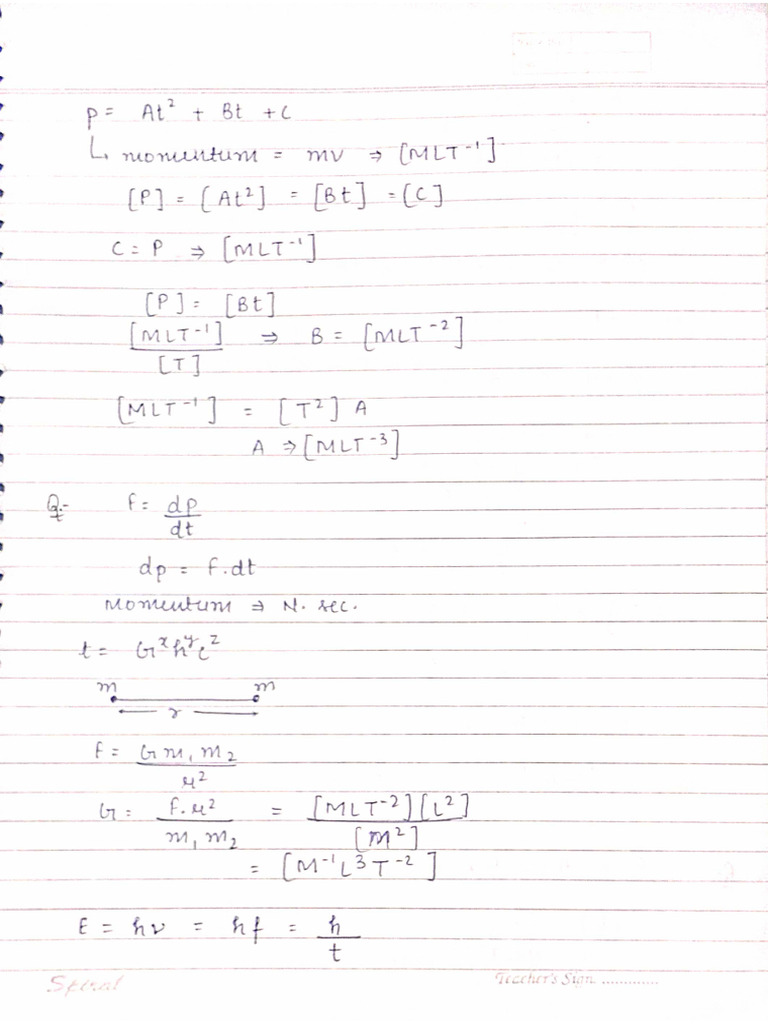 p = At² + Bt + C
↳ momentum = mv ⇒ [MLT⁻¹]
[P] = [At²] = [Bt] = [C]
C = P ⇒ [MLT⁻¹]
[P] = [Bt]
[MLT⁻¹]/[T] ⇒ B = [MLT⁻²]
[MLT⁻¹] = [T²] A
A ⇒ [MLT⁻³]
Q:- f = dp/dt
dp = f.dt
Momentum ⇒ N. sec.
t = Gˣhʸcᶻ
m m
r
f = Gm₁m₂/r²
G = f.r²/m₁m₂ = [MLT⁻²][L²]/[M²]
= [M⁻¹L³T⁻²]
E = hν = hf = h/t
Spiral Teacher's Sign .............